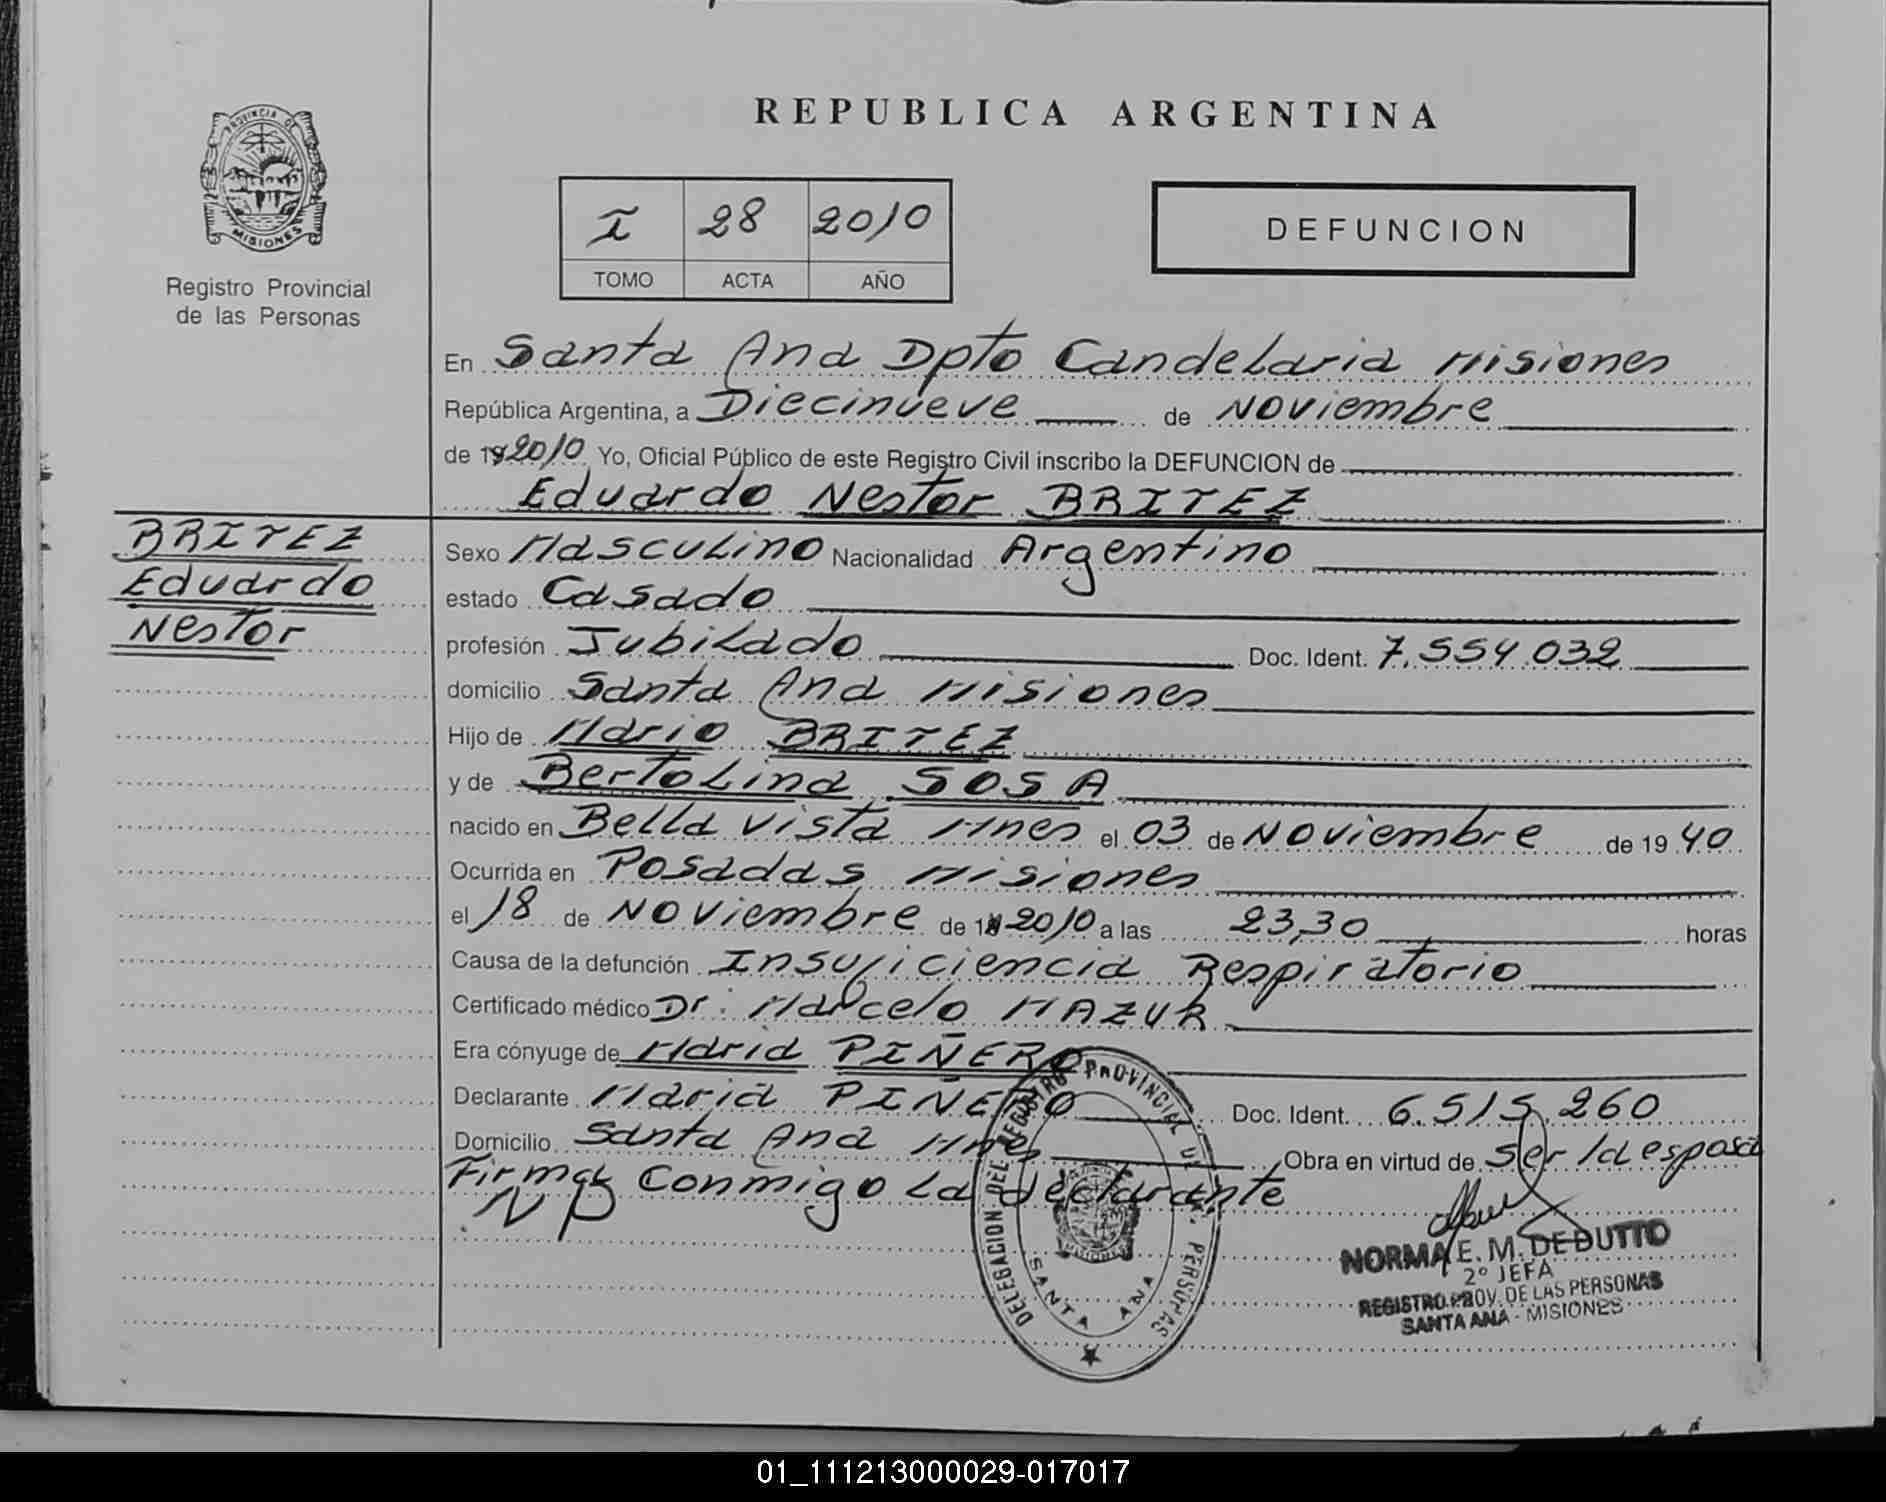 REPUBLICA ARGENTINA
PROVINCIA DE
MISIONES
Registro Provincial
de las Personas
I 28 2010
TOMO ACTA AÑO
DEFUNCION
En Santa Ana Dpto Candelaria Misiones
República Argentina, a Diecinueve de Noviembre
de 19 2010 Yo, Oficial Público de este Registro Civil inscribo la DEFUNCION de
Eduardo Nestor BRITEZ
BRITEZ
Eduardo
Nestor
Sexo Masculino Nacionalidad Argentino
estado Casado
profesión Jubilado Doc. Ident. 7.554.032
domicilio Santa Ana Misiones
Hijo de Mario BRITEZ
y de Bertolina SOSA
nacido en Bella Vista Mnes el 03 de Noviembre de 19 40
Ocurrida en Posadas Misiones
el 18 de Noviembre de 2010 a las 23,30 horas
Causa de la defunción Insuficiencia Respiratorio
Certificado médico Dr. Marcelo MAZUR
Era cónyuge de Maria PIÑERO
Declarante Maria PIÑERO Doc. Ident. 6.515.260
Domicilio Santa Ana Mnes Obra en virtud de Ser la esposa
Firma Conmigo La declarante
DELEGACION DEL REGISTRO PROVINCIAL DE LAS PERSONAS
SANTA ANA
NORMA E. M. DE DUTTO
2º JEFA
REGISTRO PROV. DE LAS PERSONAS
SANTA ANA - MISIONES
01_111213000029-017017